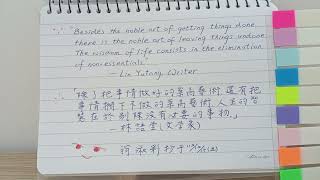 "Besides the noble art of getting things done,
there is the noble art of leaving things undone.
The wisdom of life consists in the elimination
of nonessentials."
— Lin Yutang, Writer
"除了把事情做好的崇高藝術,還有把
事情擱下不做的崇高藝術.人生的智
慧在於剔除沒有必要的事物."
—林語堂(文學家)